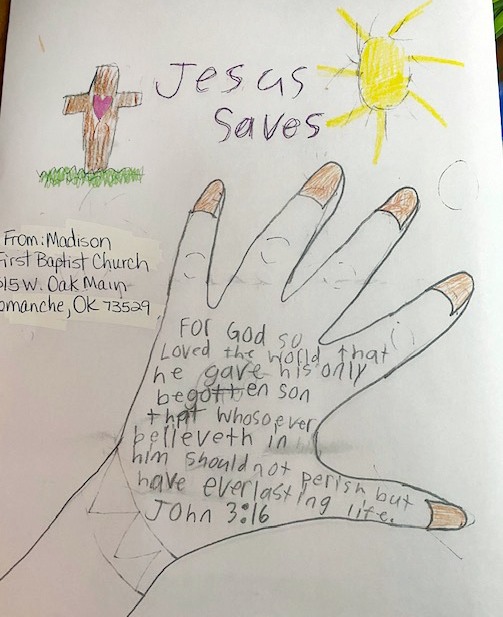 Jesus
Saves
From: Madison
First Baptist Church
W. Oak Main
Comanche, OK 73529
For God so
Loved the world that
he gave his only
begotten son
that whosoever
believeth in
him should not perish but
have everlasting life.
John 3:16